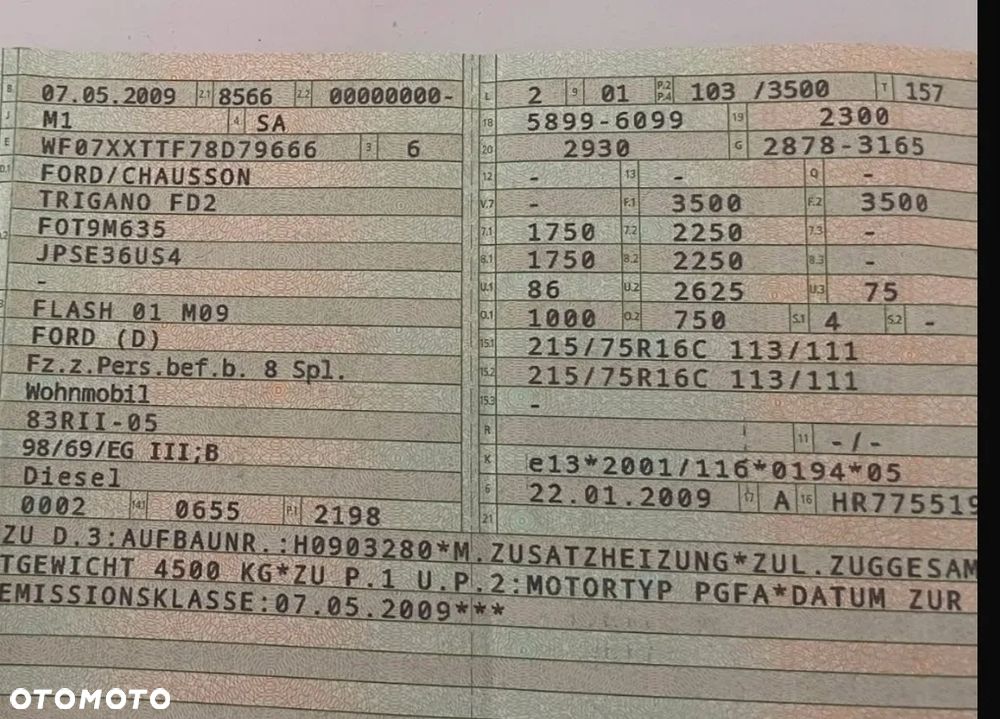 B 07.05.2009 2.1 8566 2.2 00000000-
J M1 4 SA
E WF07XXTTF78D79666 3 6
D.1 FORD/CHAUSSON
TRIGANO FD2
FOT9M635
JPSE36US4
-
FLASH 01 M09
FORD (D)
Fz.z.Pers.bef.b. 8 Spl.
Wohnmobil
83RII-05
98/69/EG III;B
Diesel
0002 14.1 0655 P.1 2198
L 2 9 01 P.2 P.4 103 /3500 T 157
18 5899-6099 19 2300
20 2930 G 2878-3165
12 - 13 - Q -
V.7 - F.1 3500 F.2 3500
7.1 1750 7.2 2250 7.3 -
8.1 1750 8.2 2250 8.3 -
U.1 86 U.2 2625 U.3 75
O.1 1000 O.2 750 S.1 4 S.2 -
15.1 215/75R16C 113/111
15.2 215/75R16C 113/111
15.3 -
R 11 -/-
K e13*2001/116*0194*05
6 22.01.2009 17 A 16 HR775519
21
ZU D.3:AUFBAUNR.:H0903280*M.ZUSATZHEIZUNG*ZUL.ZUGGESAM
TGEWICHT 4500 KG*ZU P.1 U.P.2:MOTORTYP PGFA*DATUM ZUR
EMISSIONSKLASSE:07.05.2009***
OTOMOTO